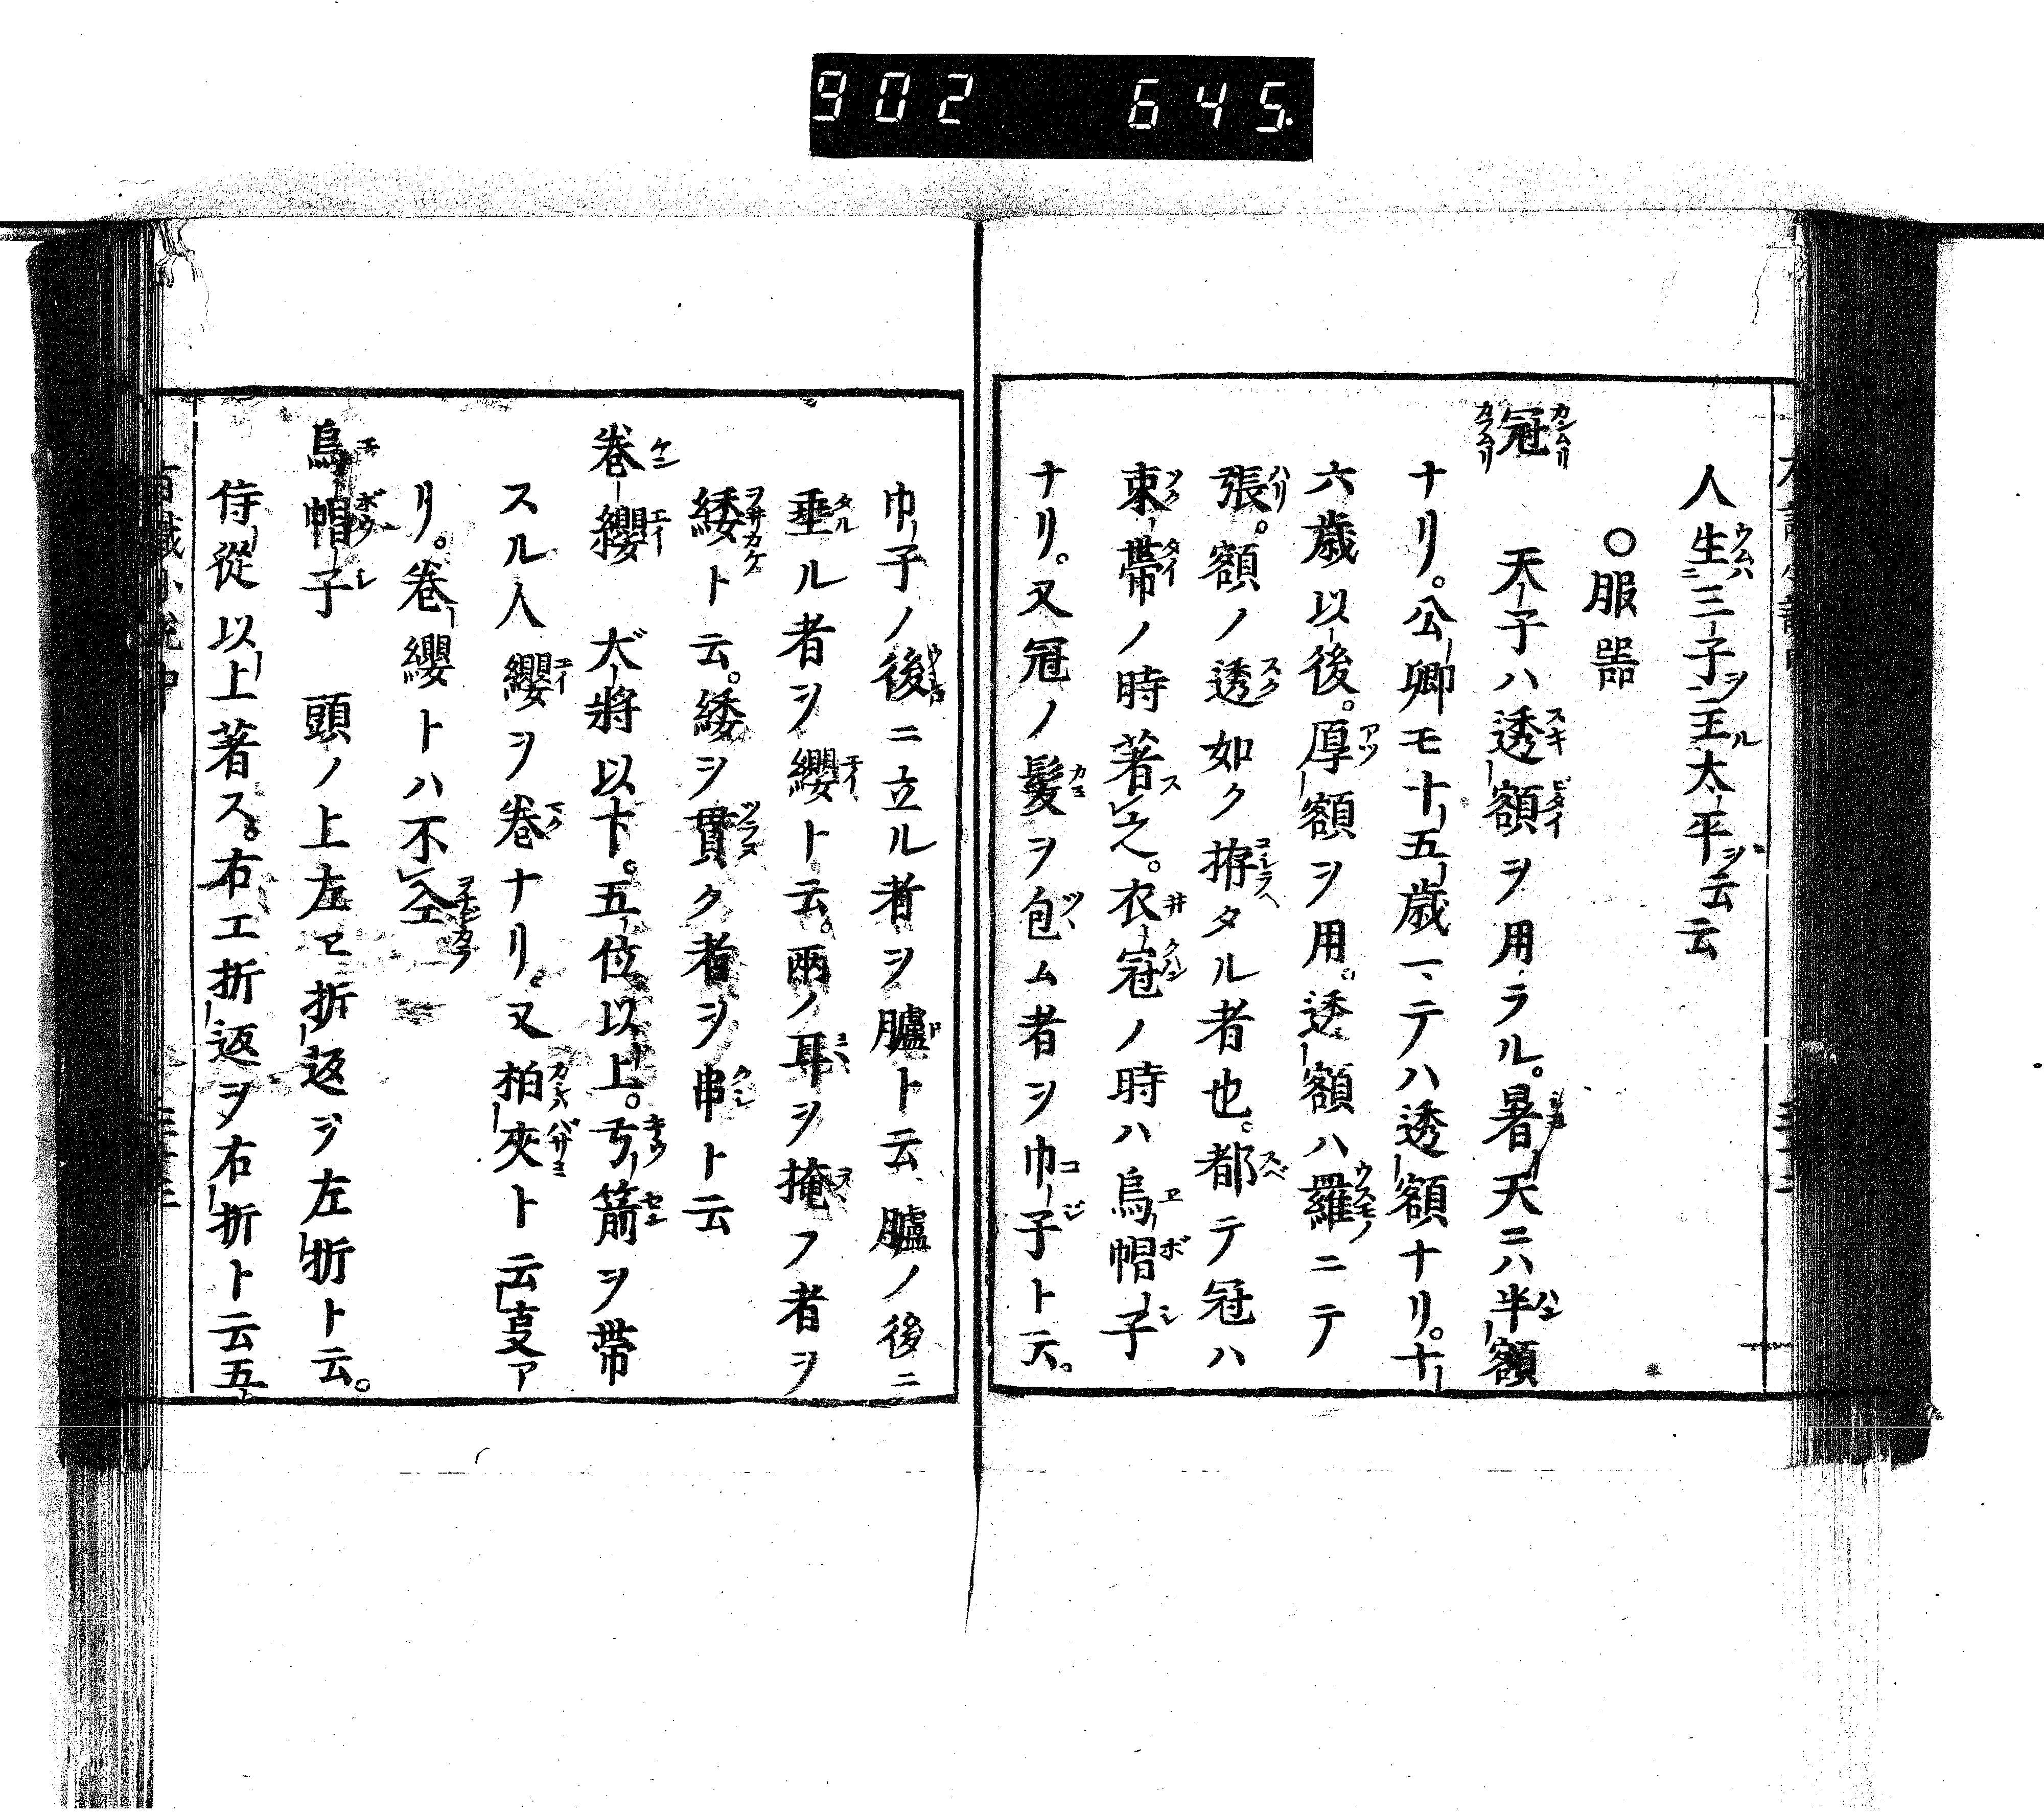 902 645.
人生三子ヲ主ル太平ヲ云云
○服噐
冠 天子ハ透額ヲ用ラル。暑天ニハ半額
ナリ。公卿モ十五歳マテハ透額ナリ。十
六歳以後。厚額ヲ用。透額ハ羅ニテ
張。額ノ透如ク拵タル者也。都テ冠ハ
束帶ノ時著之。衣冠ノ時ハ烏帽子
ナリ。又冠ノ髮ヲ包ム者ヲ巾子ト云。
巾子ノ後ニ立ル者ヲ臚ト云臚ノ後ニ
垂ル者ヲ纓ト云。兩ノ耳ヲ掩フ者ヲ
緌ト云。緌ヲ貫ク者ヲ串ト云
巻纓 大將以下。五位以上。弓箭ヲ帶
スル人纓ヲ巻ナリ。又柏夾ト云夏ア
リ。巻纓トハ不同
烏帽子 頭ノ上左エ折返ヲ左折ト云。
侍從以上著ス。右エ折返ヲ右折ト云五